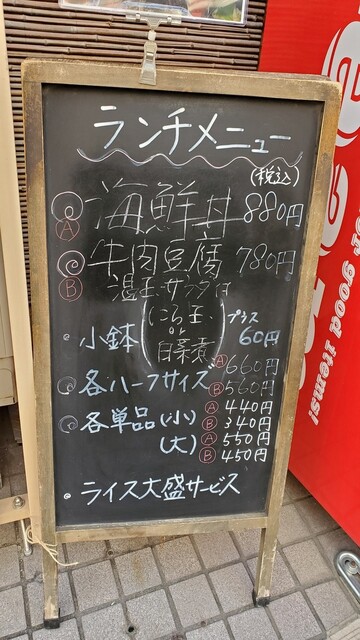 ランチメニュー
(税込)
Ⓐ 海鮮丼 880円
Ⓑ 牛肉豆腐 780円
温玉サラダ
・小鉢 にら玉 or 白菜煮 プラス 60円
各ハーフサイズ Ⓐ660円
Ⓑ560円
各単品(小) Ⓐ440円
Ⓑ340円
(大) Ⓐ550円
Ⓑ450円
・ライス大盛サービス
good items!